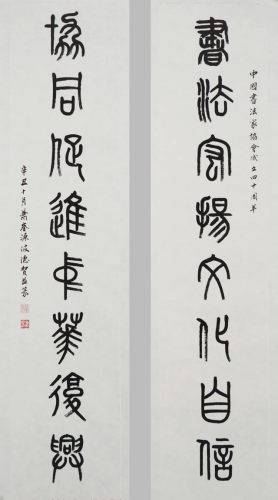 中國書法家協會成立四十周年
書法宏揚文化自信
協同促進中華復興
辛丑十月蕭春源